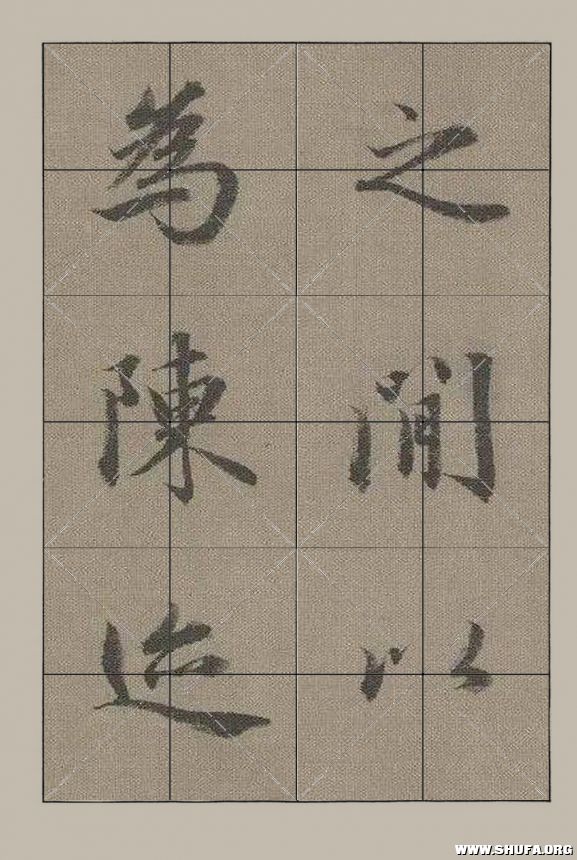 之間以
為陳迹
WWW.SHUFA.ORG